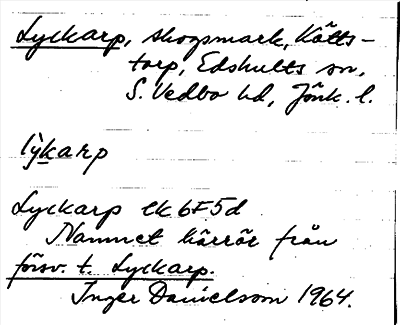 Lyckarp, skogsmark, Kätts-
torp, Edshults sn,
S. Vedbo hd, Jönk. l.
lỳkarp
Lyckarp ek 6F5d
Namnet härrör från
försv. t. Lyckarp.
Inger Danielsson 1964.